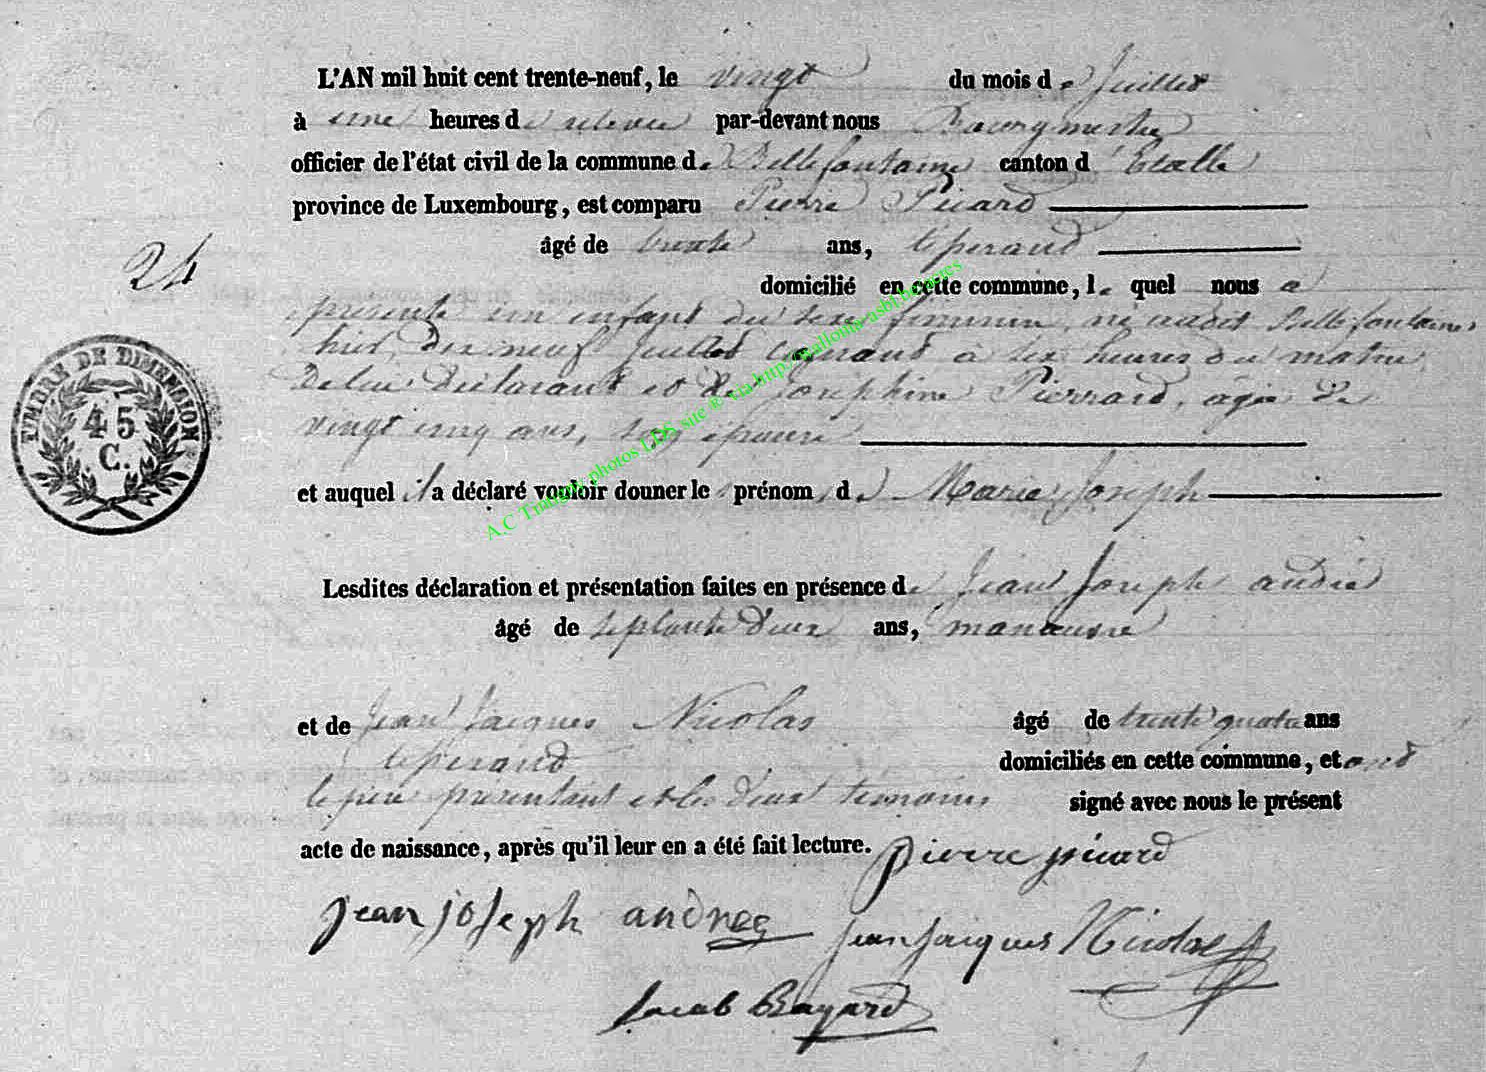 L'AN mil huit cent trente-neuf, le vingt du mois de Juillet
à une heures de relevée par-devant nous Bourgmestre
officier de l'état civil de la commune de Bellefontaine canton d'Etalle
province de Luxembourg, est comparu Pierre Picard
âgé de trente ans, tisserand
24
domicilié en cette commune, lequel nous a
présenté un enfant du sexe féminin, né audit Bellefontaine
hier dix neuf Juillet courant à six heures du matin
de lui déclarant et de Joséphine Pierrard, agée de
vingt cinq ans, son épouse
et auquel il a déclaré vouloir donner le prénom de Marie Joseph
TIMBRE DE DIMENSION
45
C.
Lesdites déclaration et présentation faites en présence de Jean Joseph andré
âgé de septante deux ans, manœuvre
et de Jean Jacques Nicolas âgé de trente quatre ans
tisserand domiciliés en cette commune, et ont
le père présentant et les deux témoins signé avec nous le présent
acte de naissance, après qu'il leur en a été fait lecture. pierre picard
jean joseph andree jean jacques Nicolas
Jacob Bayard
A.C Tintigny photos LDS site ® via http://wallonia-asbl.be/actes